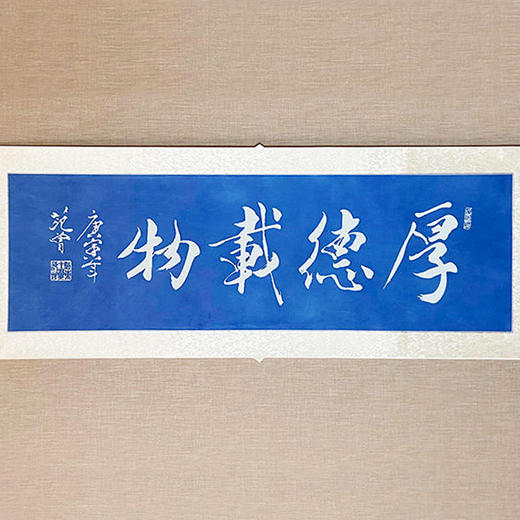 厚德載物
庚寅年
范曾